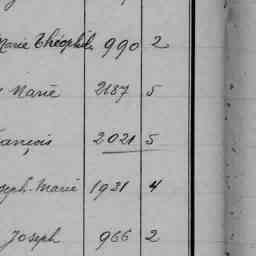 Marie Théophile 990 2
Marie 2187 5
François 2021 5
Joseph-Marie 1931 4
Joseph 966 2